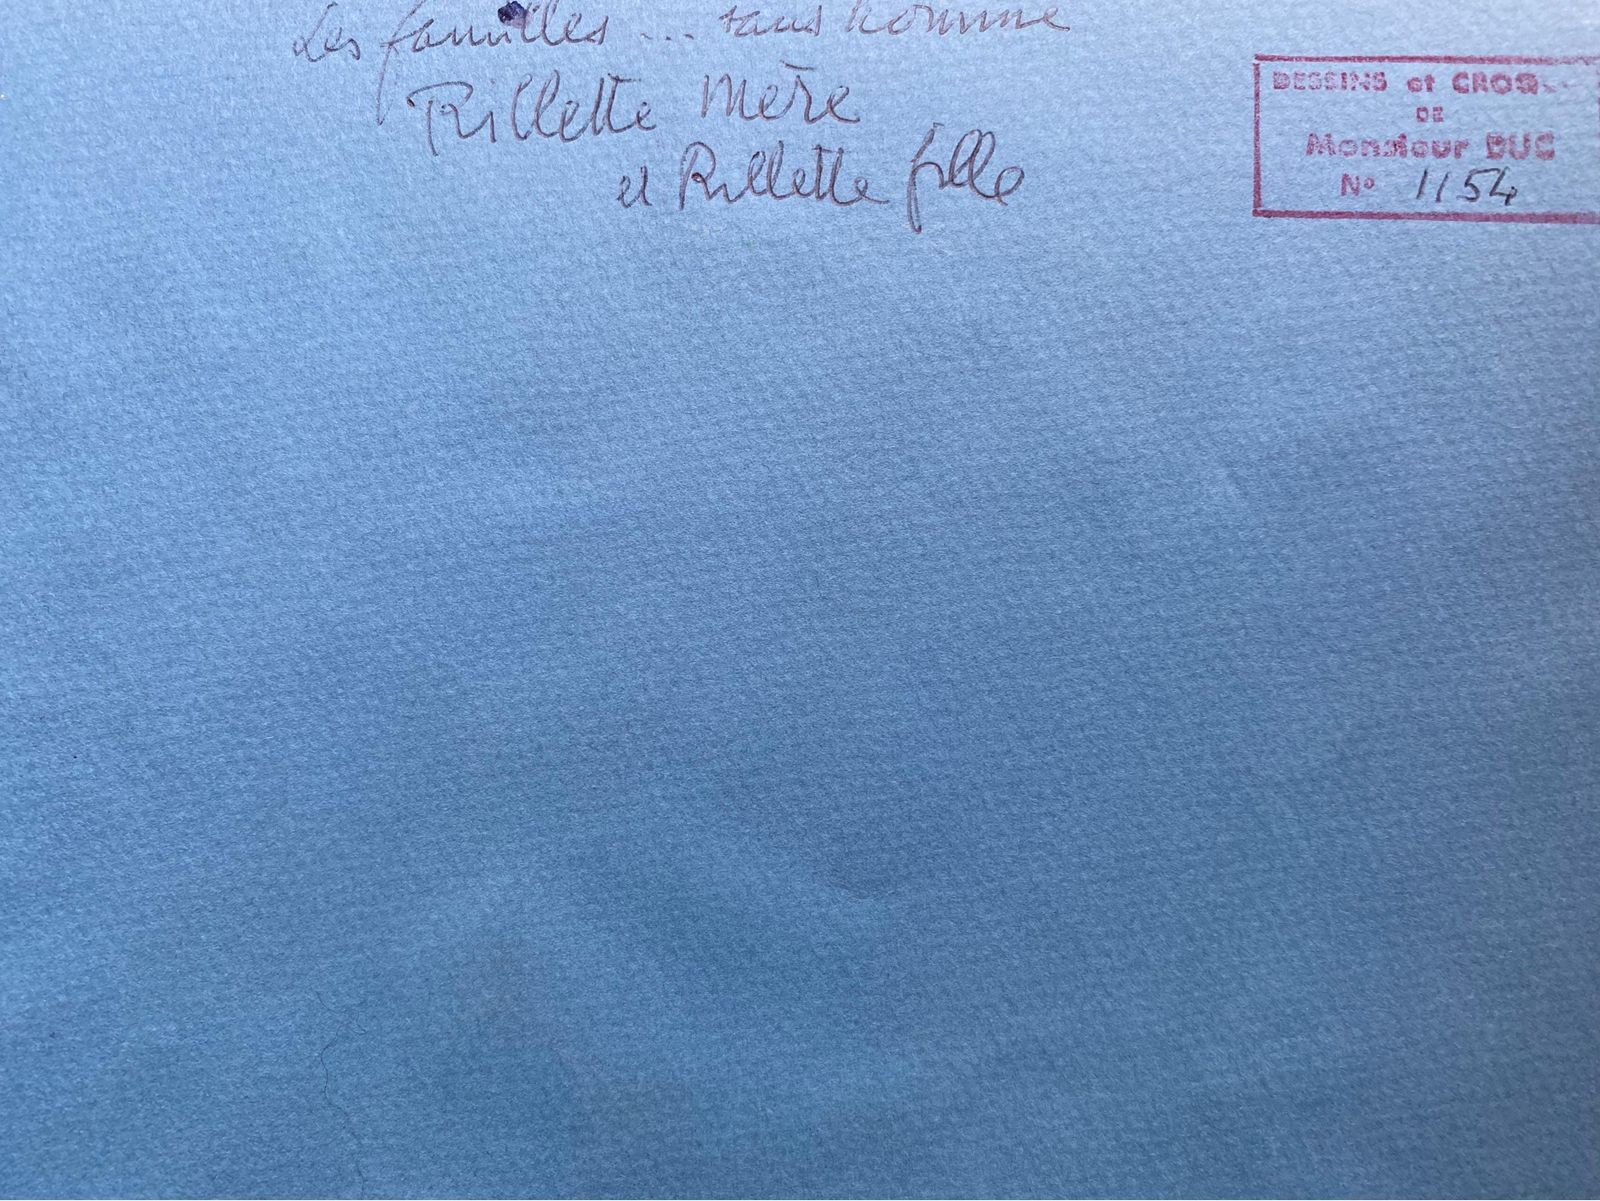 Les familles ... sans homme
Rillette Mère
et Rillette fille
DESSINS et CROQ
DE
Monsieur DUC
No 1154